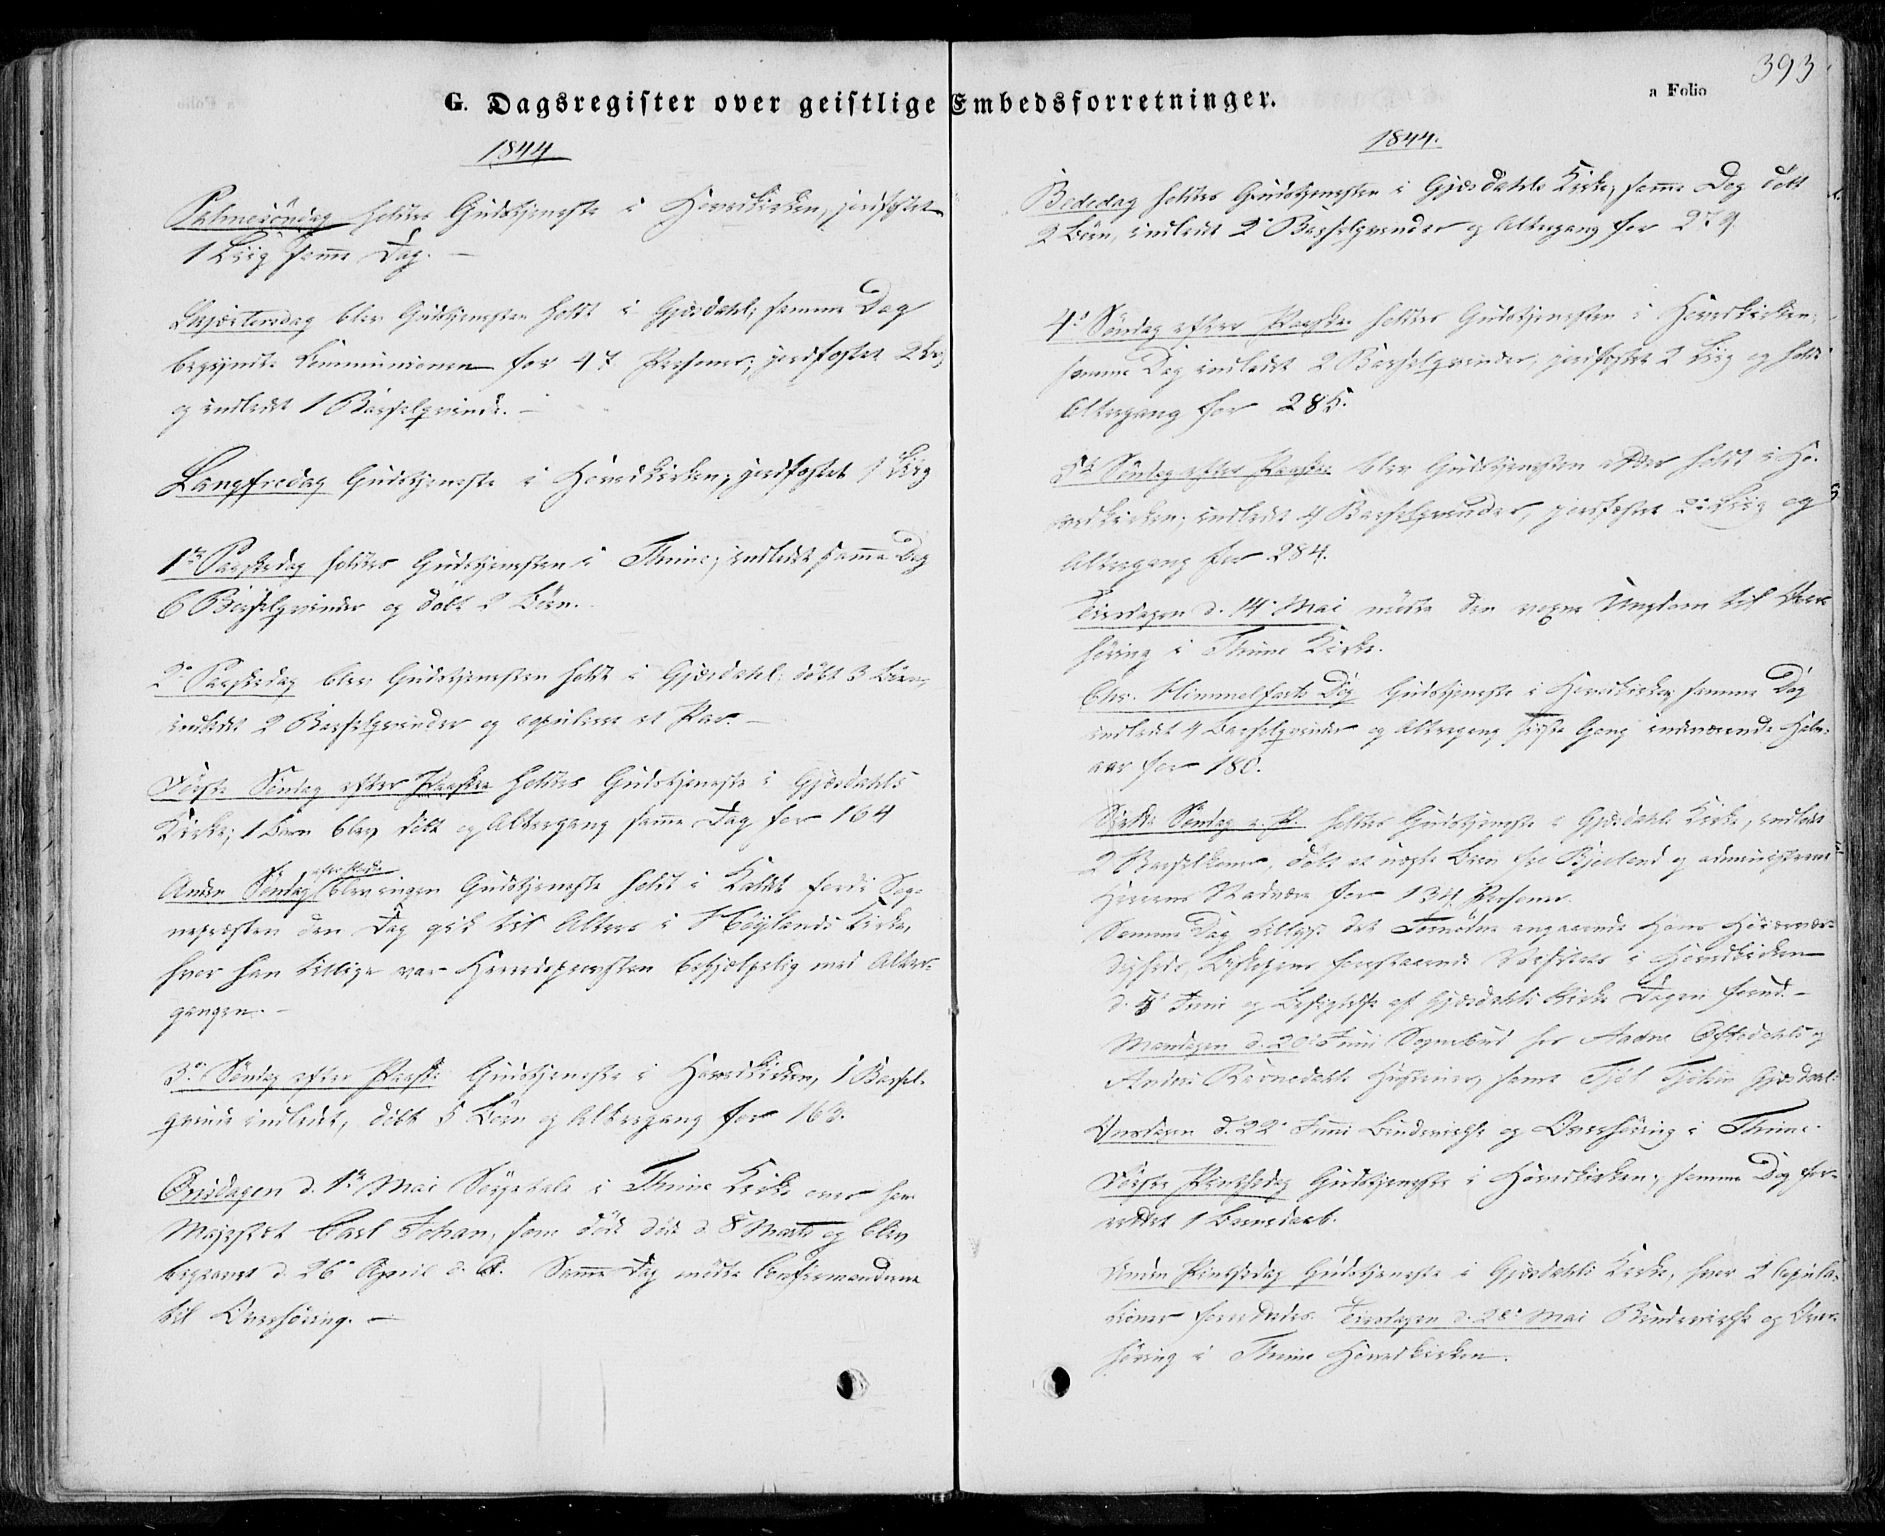 393
a Folio
G. Dagsregister over geistlige Embedsforretninger.
1844
Palmesöndag holdtes Gudstjeneste i Hovedkirken, jordfæstet
1 Liig samme Dag. –
Skjærtorsdag blev Gudstjenesten holdt i Gjæsdahl; samme Dag
begyndte Communionen for 47 Personer; jordfæstet 2 Liig
og indledt 1 Barselqvinde. –
Langfredag Gudstjeneste i Hovedkirken, jordfæstet 1 Liig
1ste Paaskedag holdtes Gudstjenesten i Thime; indledt samme Dag
6 Barselqvinder og döbt 2 Börn.
2. Paaskedag blev Gudstjenesten holdt i Gjæsdahl: döbt 3 Börn,
indledt 2 Barselqvinder og copuleret et Par. –
Förste Söndag efter Paaske holdtes Gudstjeneste i Gjæsdahls
Kirke; 1 Barn blev döbt og Altergang samme Dag for 164
Anden Söndag efter Paaske blev ingen Gudstjeneste holdt i Kaldet fordi Sog-
nepræsten den Dag gik til Alters i Höylands Kirke,
hvor han tillige var Herredsprovsten behjælpelig med Alter-
gangen. –
3. Söndag efter Paaske Gudstjeneste i Hovedkirken, 1 Barsel-
qvinde indledt, döbt 5 Börn og Altergang for 163.
Onsdagen d. 1ste Mai Sörgetale i Thime Kirke over hans
Majestæt Carl Johan, som döde d. 8 Marts og blev
begravet d. 26. April d. A. Samme Dag mödte Confirmanderne
til Overhöring. –
1844.
Bededag holdtes Gudstjenesten i Gjæsdahls Kirke; samme Dag döbt
2 Börn, indledt 2 Barselqvinder og Altergang for 279.
4. Söndag efter Paaske holdtes Gudstjenesten i Hovedkirken;
samme Dag indledt 2 Barselqvinder, jordfæstet 2 Liig og holdt
Altergang for 285.
5te Söndag efter Paaske blev Gudstjenesten atter holdt i Ho-
vedkirken; indledt 4 Barselqvinder, jordfæstet 2 Liig og
Altergang for 284.
Tirsdagen d. 14. Mai mödte den Ungdom til Over-
höring i Thime Kirke.
Chr. Himmelfarts Dag Gudstjeneste i Hovedkirken; samme Dag
indledt 4 Barselqvinder og Altergang sidste Gang indeværende Halv-
aar for 180.
Sjette Söndag e. P. holdtes Gudstjeneste i Gjæsdahls Kirke, indledt
2 Barselkoner, döbt et Barn fra Bjerland og administreret
Herrens Nadvere for 134 Personer.
Samme Dag det angaaende Hans Höiærvær-
dighed Biskopens forestaaende Visitats i Hovedkirken
d. 5. Juni og Besigtelse af Gjæsdahls Kirke Dagen forud. –
Mandagen d. 20. Juni Sognebud hos Aadne Oftedahls og
samt Gjæsdahl:
Onsdagen d. 22. Juni og Overhöring i Thime.
Förste Pintsedag Gudstjeneste i Hovedkirken; samme Dag for-
rettet 1 Barnedaab.
Anden Pintsedag Gudstjeneste i Gjæsdahls Kirke, hvor 2 Copula-
tioner forrettedes. Tirsdagen d. 28. Mai og Over-
höring i Thime Hovedkirken.